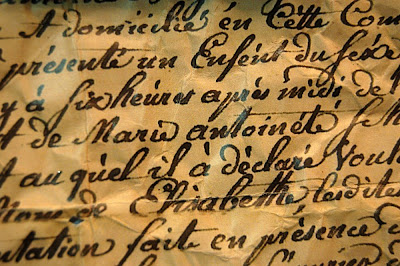 A domicilié en Cette Com
présenté un Enfent du sexe
y à six heures après midi de
t de Marie antoinété
t au quel il à déclaré Voul
tions de Elisabethe lesdites
entation fait en présence d